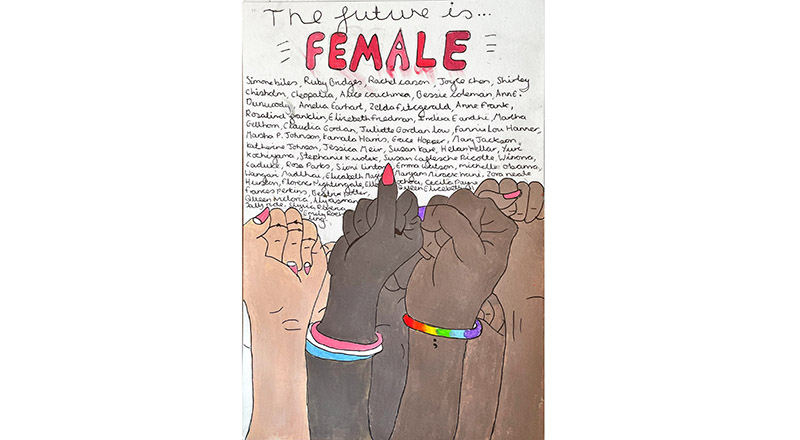 The future is...
FEMALE
Simone biles, Ruby Bridges, Rachel carson, Joyce chen, Shirley
chisholm, Cleopatra, Alice couchmen, Bessie coleman, Anne
Dunwoody, Amelia Earhart, Zelda fitzgerald, Anne Frank,
Rosalind franklin, Elizabeth Friedman, Indira Gandhi, Martha
Gellhorn, Claudia Gordan, Juliette Gordan low, Fannie Lou Hamer,
Marsha P. Johnson, Kamala Harris, Grace Hopper, Mary Jackson,
Katherine Johnson, Jessica Meir, Susan Kare, Helen Kellar, Yuri
Kochiyama, Stephanie Kwolek, Susan LaFlesche Picotte, Winona
Laduke, Rosa Parks, Emma Watson, michelle obama,
Wangari Maathai, Elizabeth Maryam Mirzakhani, Zora neale
Hurston, Florence Nightingale, Ellen Ochoa, Cecilia Payne
Frances Perkins, Beatrix Potter, Queen Elizabeth
Queen Victoria, Aly raisman
Sally ride,
Emily